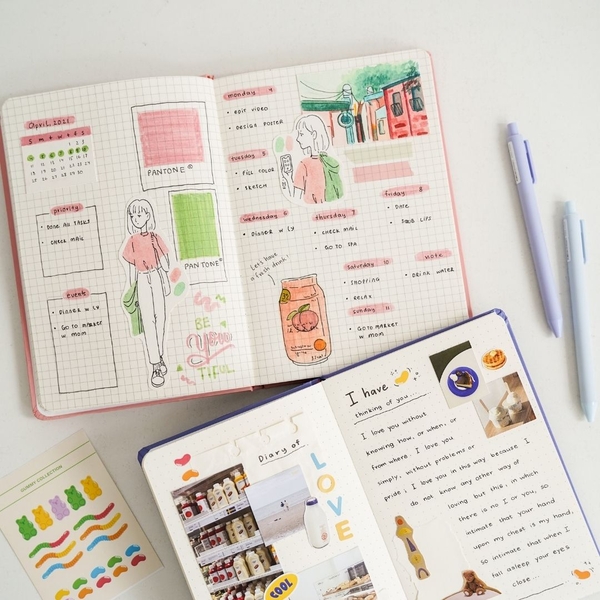 April, 2021
S M T W T F S
priority
• DONE ALL TASKS
• CHECK MAIL
events
• DINNER W LY
• GO TO MARKET
W MOM
PANTONE ©
PANTONE ©
BE
YOU
TIFUL
monday 4
• EDIT VIDEO
• DESIGN POSTER
tuesday 5
• FILL COLOR
• SKETCH
wednesday 6
• DINNER W LY
thursday 7
• CHECK MAIL
• GO TO SPA
friday 8
• DATE
saturday 10
• SHOPPING
• RELAX
note
• DRINK WATER
sunday 11
• GOTO MARKET
W MOM
Let's have
a fresh drink!
GUMMY COLLECTION
Diary of
LOVE
COOL
I have
thinking of you...
I love you without
knowing how, or when, or
from where. I love you
simply, without problems or
pride: I love you in this way because I
do not know any other way of
loving but this, in which
there is no I or you, so
intimate that your hand
upon my chest is my hand,
so intimate that when I
fall asleep your eyes
close...